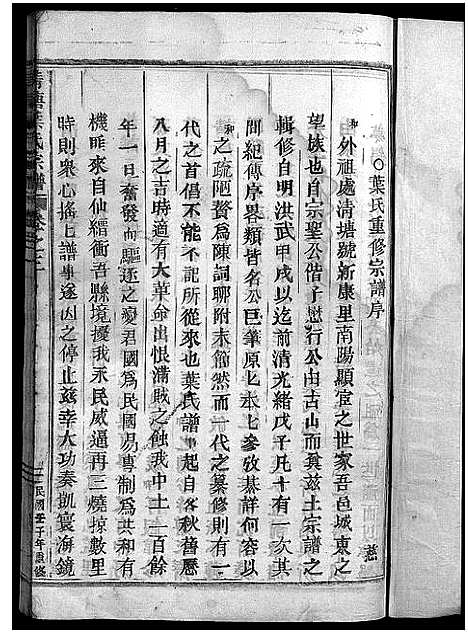 葉氏重修宗譜序
外祖處清塘號新康里南陽顯宦之世家吾邑城東之
望族也自宗聖公偕子懋行公由古山而奠茲土宗譜之
輯修自明洪武甲戌以迄前清光緒戊子凡十有一次其
間紀傳序畧類皆名公巨筆原原本本參攷綦詳何容以
之疏陋贅為陳詞聯附末簡然而一代之纂修則有一
代之首倡不能不記所從來也葉氏譜事起自客秋舊歷
八月之吉時適有大革命出恨滿敗之蝕我中土二百餘
年一旦奮發向驅逐之變君國為民國易專制為共和有
機匪來自仙縉衝吾縣境擾我永民威逼再三燒掠數里
時則衆心搖上譜事遂因之停止茲幸大功奏凱寰海鏡
民國壬子年重修